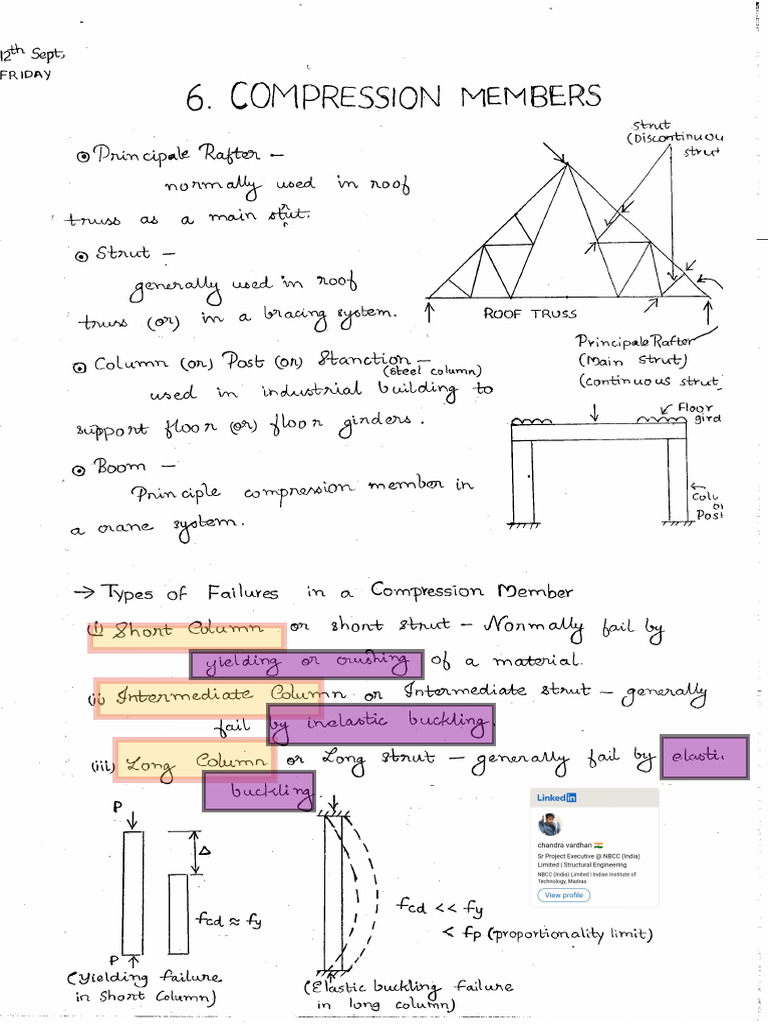 12th Sept,
FRIDAY
6. COMPRESSION MEMBERS
Principale Rafter –
normally used in roof
truss as a main strut.
Strut –
generally used in roof
truss (or) in a bracing system.
Column (or) Post (or) Stanction –
(steel column)
used in industrial building to
support floor (or) floor girders.
Boom –
Principle compression member in
a crane system.
strut
(Discontinuou
strut
ROOF TRUSS
Principale Rafter
(Main strut)
(continuous strut
Floor
gird
Colu
or
Post
→ Types of Failures in a Compression Member
(i) Short Column or short strut – Normally fail by
yielding or crushing of a material.
(ii) Intermediate Column or Intermediate strut – generally
fail by inelastic buckling.
(iii) Long Column or Long strut – generally fail by elasti
buckling.
P
Δ
fcd ≈ fy
P
(Yielding failure
in Short Column)
fcd << fy
< fp (proportionality limit)
(Elastic buckling failure
in long column)
LinkedIn
chandra vardhan 🇮🇳
Sr Project Executive @ NBCC (India)
Limited | Structural Engineering
NBCC (India) Limited | Indian Institute of
Technology, Madras
View profile